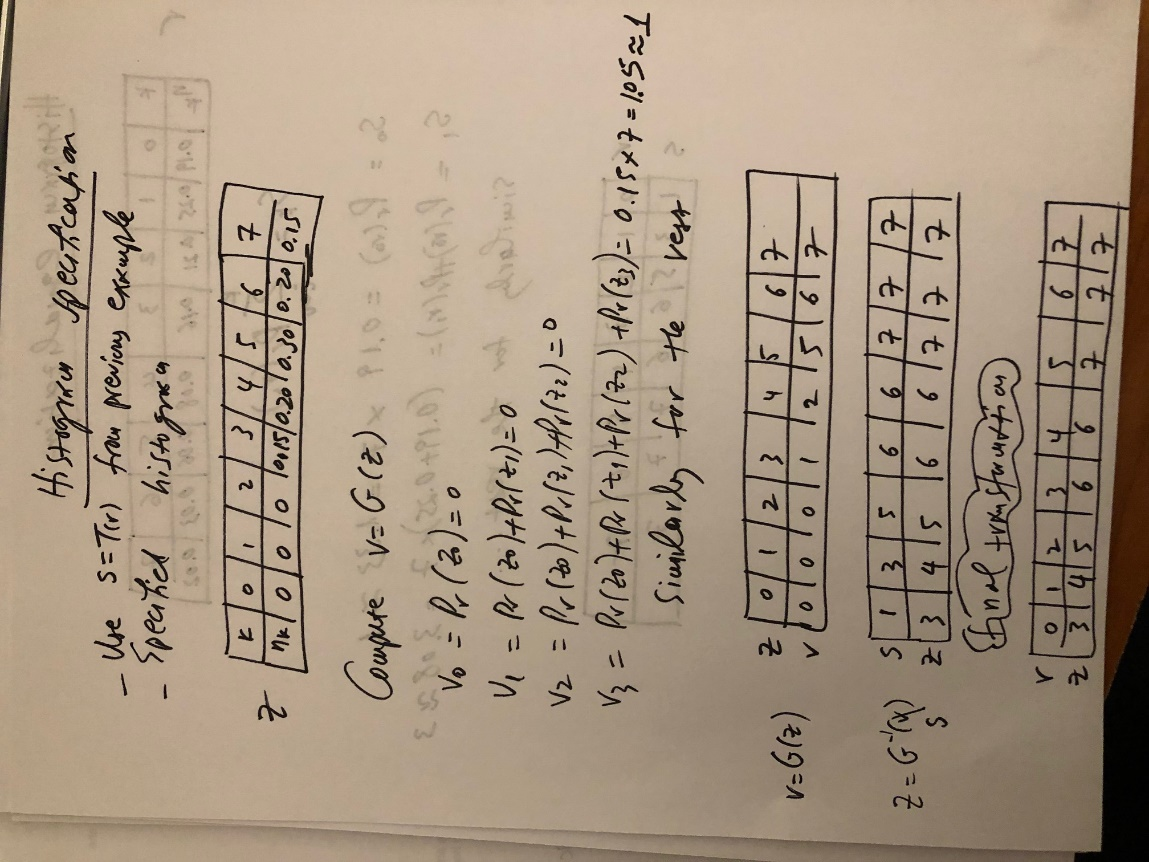 Histogram specification
- Use S=T(r) from previous example
- Specified histogram
k | 0 | 1 | 2 | 3 | 4 | 5 | 6 | 7
z nk | 0 | 0 | 0 | 0.15 | 0.20 | 0.30 | 0.20 | 0.15
Compute V=G(z)
V0 = Pr(z0)=0
V1 = Pr(z0)+Pr(z1)=0
V2 = Pr(z0)+Pr(z1)+Pr(z2)=0
V3 = Pr(z0)+Pr(z1)+Pr(z2)+Pr(z3)=0.15x7=1.05≈1
Similarly for the rest
z 0 | 1 | 2 | 3 | 4 | 5 | 6 | 7
V=G(z) v 0 | 0 | 0 | 1 | 2 | 5 | 6 | 7
S 1 | 3 | 5 | 6 | 6 | 7 | 7 | 7
z=G⁻¹(v) z 3 | 4 | 5 | 6 | 6 | 7 | 7 | 7
S
final transformation
r 0 | 1 | 2 | 3 | 4 | 5 | 6 | 7
z 3 | 4 | 5 | 6 | 6 | 7 | 7 | 7